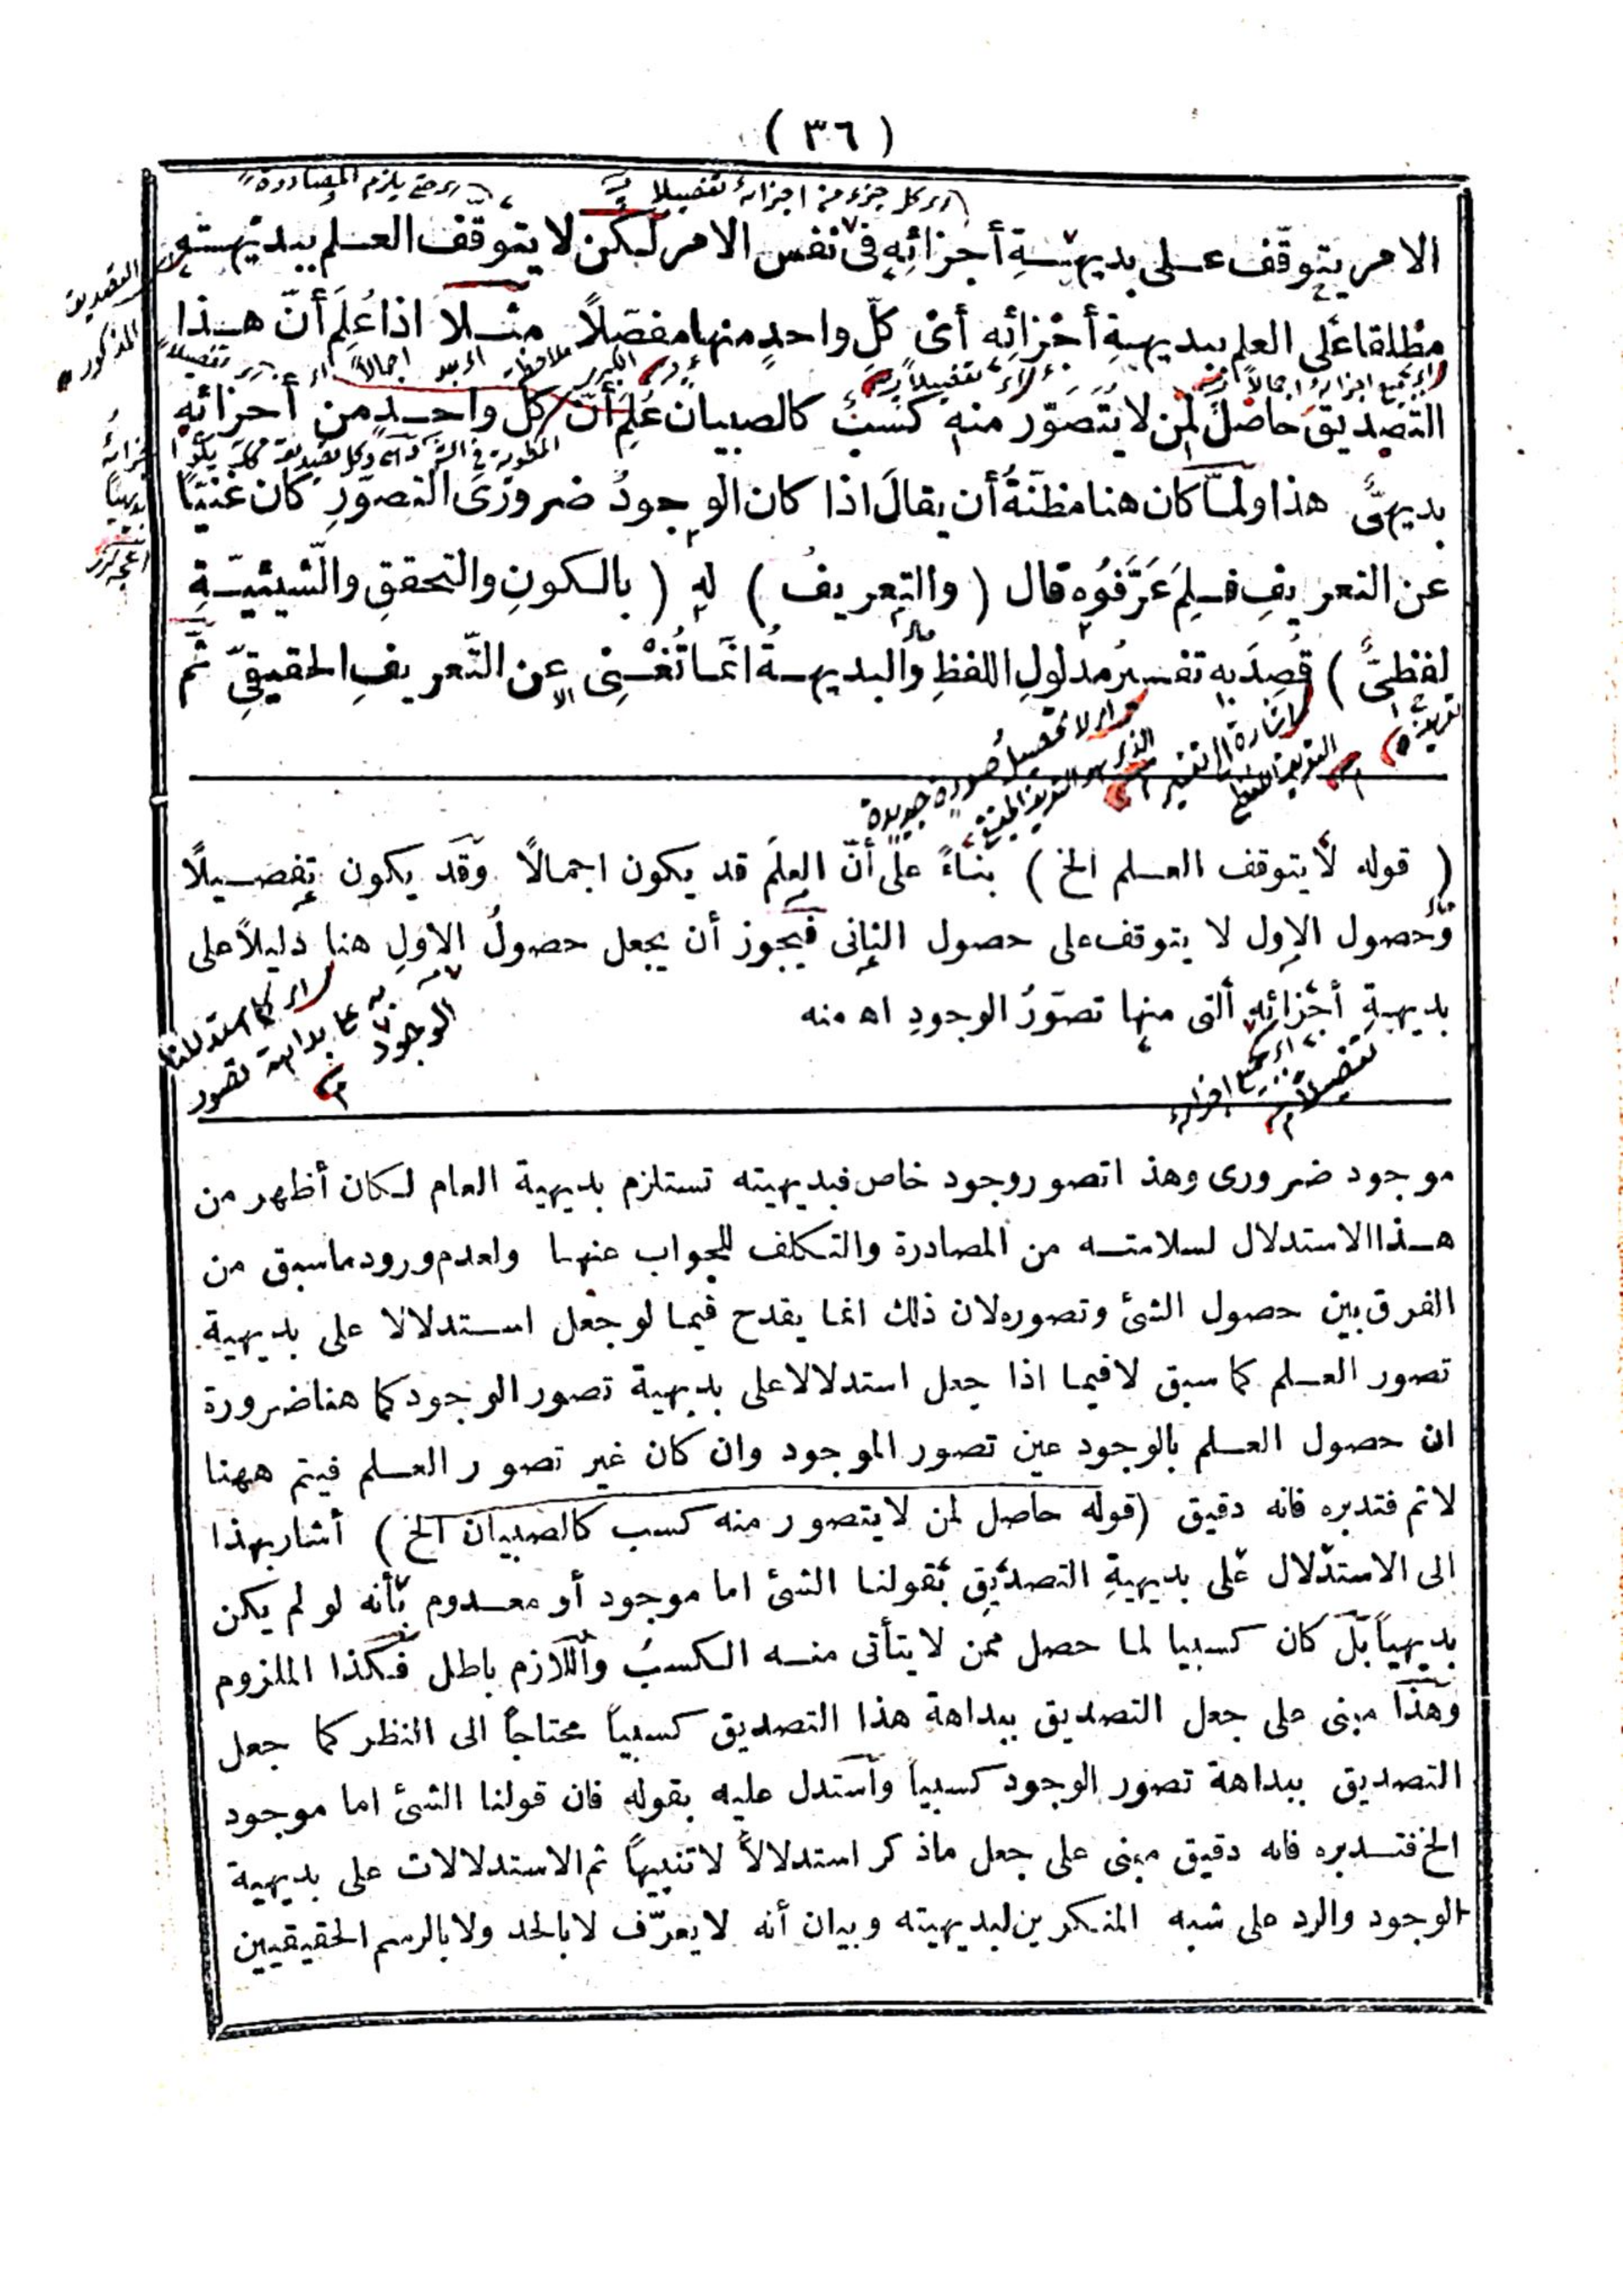 ( ٣٦ )
الامر يتوقّف عـلى بديهـيّـةِ أجزائِهِ فى نفس الامر لكن لا يتوقّف العـلم ببديهيته
مطلقا على العلم ببديهيةِ أجْزائِه أىْ كلِّ واحدٍ منها مفصّلاً مثـلا اذا عُلِمَ أنّ هـذا
التصديقَ حاصلٌ لمن لا يُتَصَوّر منه كَسْبٌ كالصبيان عُلِمَ أنّ كل واحـدٍ من أجزائهِ
بديهىٌّ هذا ولمّا كان هنا مظنّةُ أن يقالَ اذا كان الوجودُ ضرورىَ التصوّرِ كان غَنيّا
عن التعريفِ فـلِمَ عَرَّفوُه قال ( والتعريفُ ) له ( بالـكونِ والتحققِ والشّيئيّـةِ
لفظىٌّ ) قُصِدَ به تفسيرُ مدلولِ اللفظِ والبديهـةُ انّما تُغْـنِى عن التّعريفِ الحقيقىِّ ثُمّ
( قوله لا يتوقف العـلم الخ ) بناءً على أنّ العلمَ قد يكون اجمالاً وقد يكون تفصـيلاً
وحصول الاول لا يتوقف على حصول الثانى فيجوز أن يجعل حصولُ الاولِ هنا دليلاً على
بديهيةِ أجْزائِهِ التى منها تصوّرُ الوجودِ اه منه
اى كما استدللنا
به على بداهة تصور
الوجود
اى بجميع اجزائه
تفصيلاً
موجود ضرورى وهذا تصور وجود خاص فبديهيته تستلزم بديهية العام لـكان أظهر من
هـذا الاستدلال لسلامتـه من المصادرة والتـكلف للجواب عنهـا ولعدم ورود ماسبق من
الفرق بين حصول الشئ وتصوره لان ذلك انما يقدح فيمـا لو جعل اسـتدلالا على بديهية
تصور العـلم كما سبق لا فيمـا اذا جعل استدلالا على بديهية تصور الوجود كما هنا ضرورة
ان حصول العـلم بالوجود عين تصور الموجود وان كان غير تصور العـلم فيتم ههنا
لا ثم فتدبره فانه دقيق (قوله حاصل لمن لا يتصور منه كسب كالصبيان الخ ) أشار بهذا
الى الاستدلال على بديهيةِ التصديقِ بقولنـا الشئ اما موجود أو معـدوم بأنه لو لم يكن
بديهياً بل كان كسبيا لمـا حصل ممن لا يتأتى منـه الـكسبُ واللازم باطل فـكذا الملزوم
وهذا مبنى على جعل التصديق ببداهة هذا التصديق كسبياً محتاجاً الى النظر كما جعل
التصديق ببداهة تصور الوجود كسبياً واستدل عليه بقوله فان قولنا الشئ اما موجود
الخ فتـدبره فانه دقيق مبنى على جعل ماذكر استدلالاً لا تنبيهاً ثم الاستدلالات على بديهية
الوجود والرد على شبه المنـكرين لبديهيته وبيان أنه لا يعرّف لا بالحد ولا بالرسم الحقيقيين